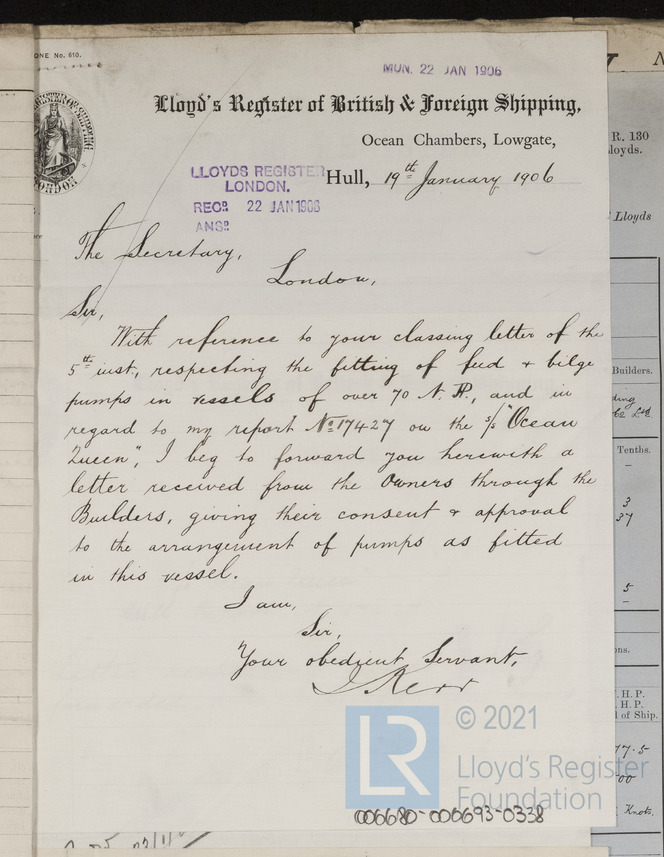 ONE No. 610.
MON. 22 JAN 1906
Lloyd's Register of British & Foreign Shipping,
Ocean Chambers, Lowgate,
LLOYDS REGISTER
LONDON.
Hull, 19th January 1906
RECD. 22 JAN 1906
ANSD.
The Secretary,
London,
Sir,
With reference to your classing letter of the
5th inst, respecting the fitting of feed & bilge
pumps in vessels of over 70 N.H.P., and in
regard to my report No 17427 on the s/s "Ocean
Queen", I beg to forward you herewith a
letter received from the Owners through the
Builders, giving their consent & approval
to the arrangement of pumps as fitted
in this vessel.
I am,
Sir,
Your obedient Servant,
J Kerr
R. 130
loyds.
Lloyds
Builders.
Tenths.
3
37
5
ons.
H.P.
H.P.
l of Ship.
77.5
00
Knots.
LR
© 2021
Lloyd's Register
Foundation
006680-006693-0338